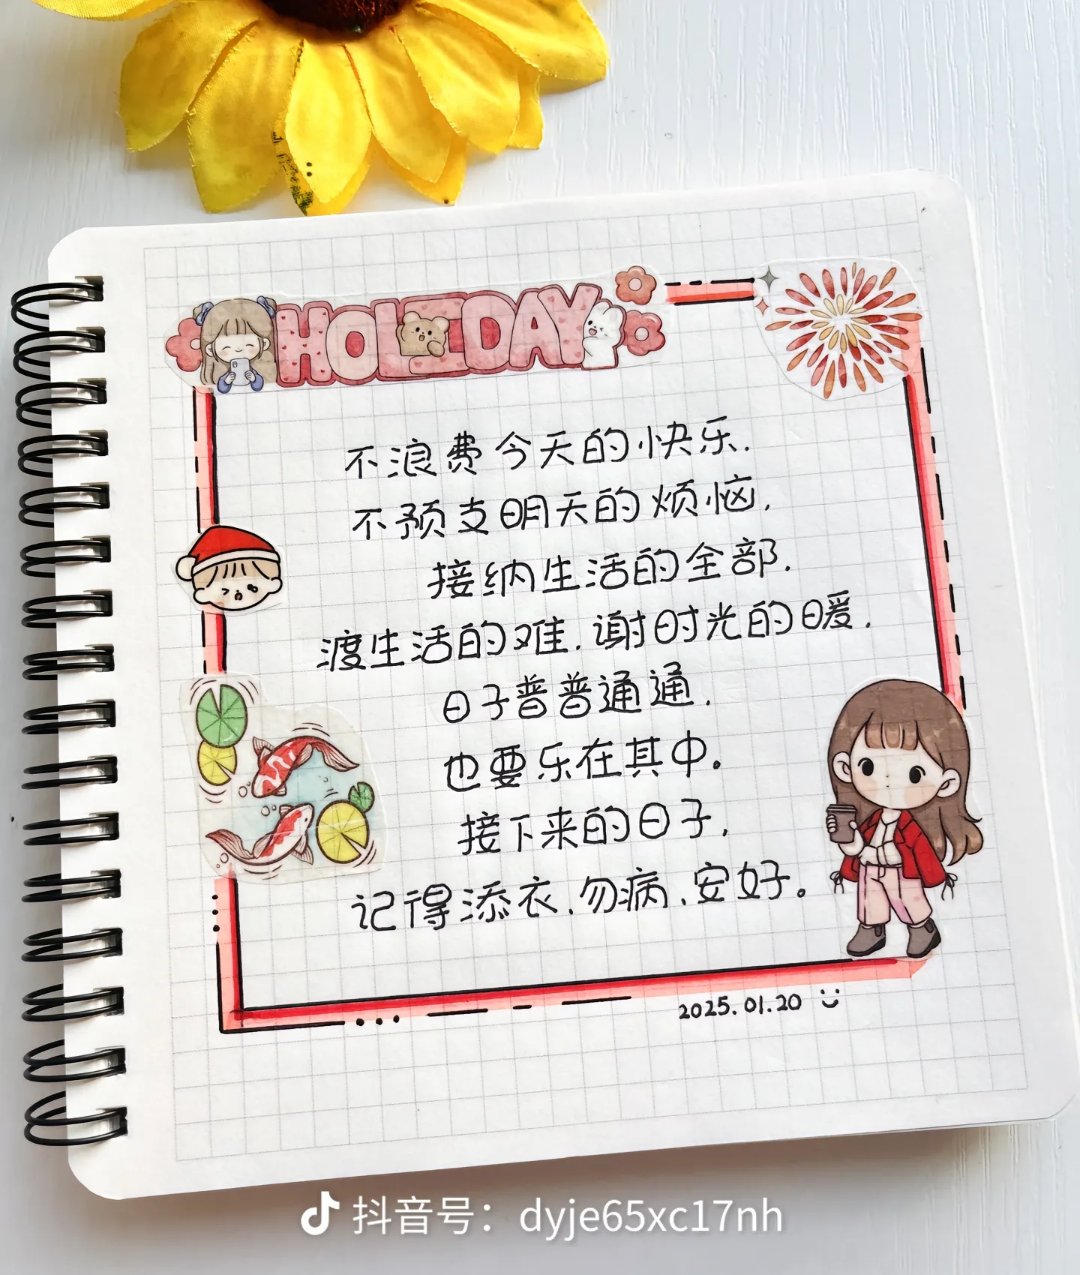 HOLIDAY
不浪费今天的快乐.
不预支明天的烦恼.
接纳生活的全部.
渡生活的难.谢时光的暖.
日子普普通通.
也要乐在其中。
接下来的日子.
记得添衣.勿病.安好。
2025.01.20
抖音号：dyje65xc17nh